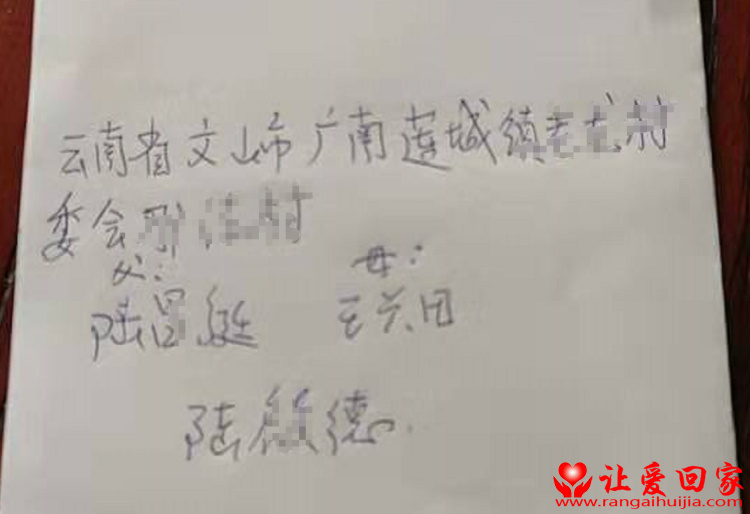 云南省文山市广南莲城镇村
委会村
父： 母：
陆昌 王兴田
陆德
让爱回家
www.rangaihuijia.com